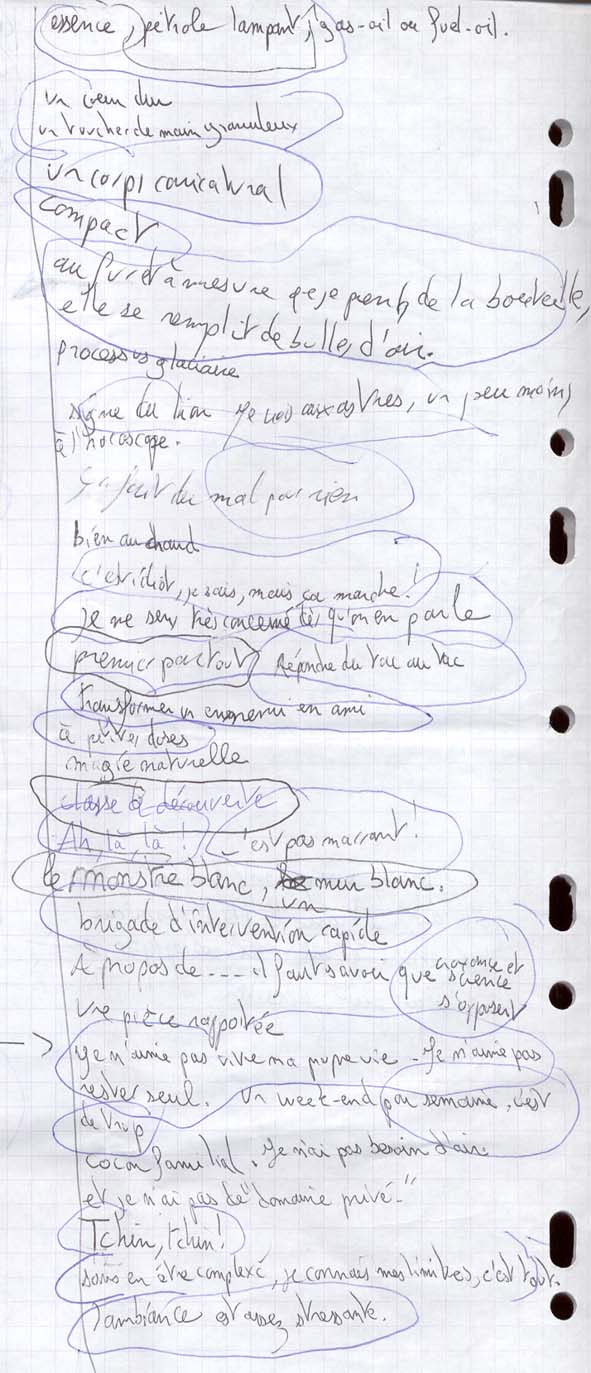 essence, pétrole lampant, gas-oil ou fuel-oil.
un cœur dur
un toucher de main granuleux
un corps caricatural
compact
au fur et à mesure que je prends de la bouteille,
elle se remplit de bulles d'air.
processus glaciaire
signe du lion Je crois aux astres, un peu moins
à l'horoscope.
Ça fait du mal pour rien
bien au chaud
c'est idiot, je sais, mais ça marche !
Je me sens très concerné dès qu'on en parle
premier partout Répondre du tac au tac
transformer un ennemi en ami
à petites doses
magie naturelle
classe à découverte
Ah, là, là ! C'est pas marrant !
le monstre blanc, un mur blanc.
brigade d'intervention rapide
A propos de .... il faut savoir que croyance et
science
s'opposent
une pièce rapportée
Je n'aime pas vivre ma propre vie - Je n'aime pas
rester seul. Un week-end par semaine, c'est
de trop
cocon familial. Je n'ai pas besoin d'air
et je n'ai pas de "domaine privé-"
Tchin, tchin !
sans en être complexé, je connais mes limites, c'est tout.
l'ambiance est assez stressante.